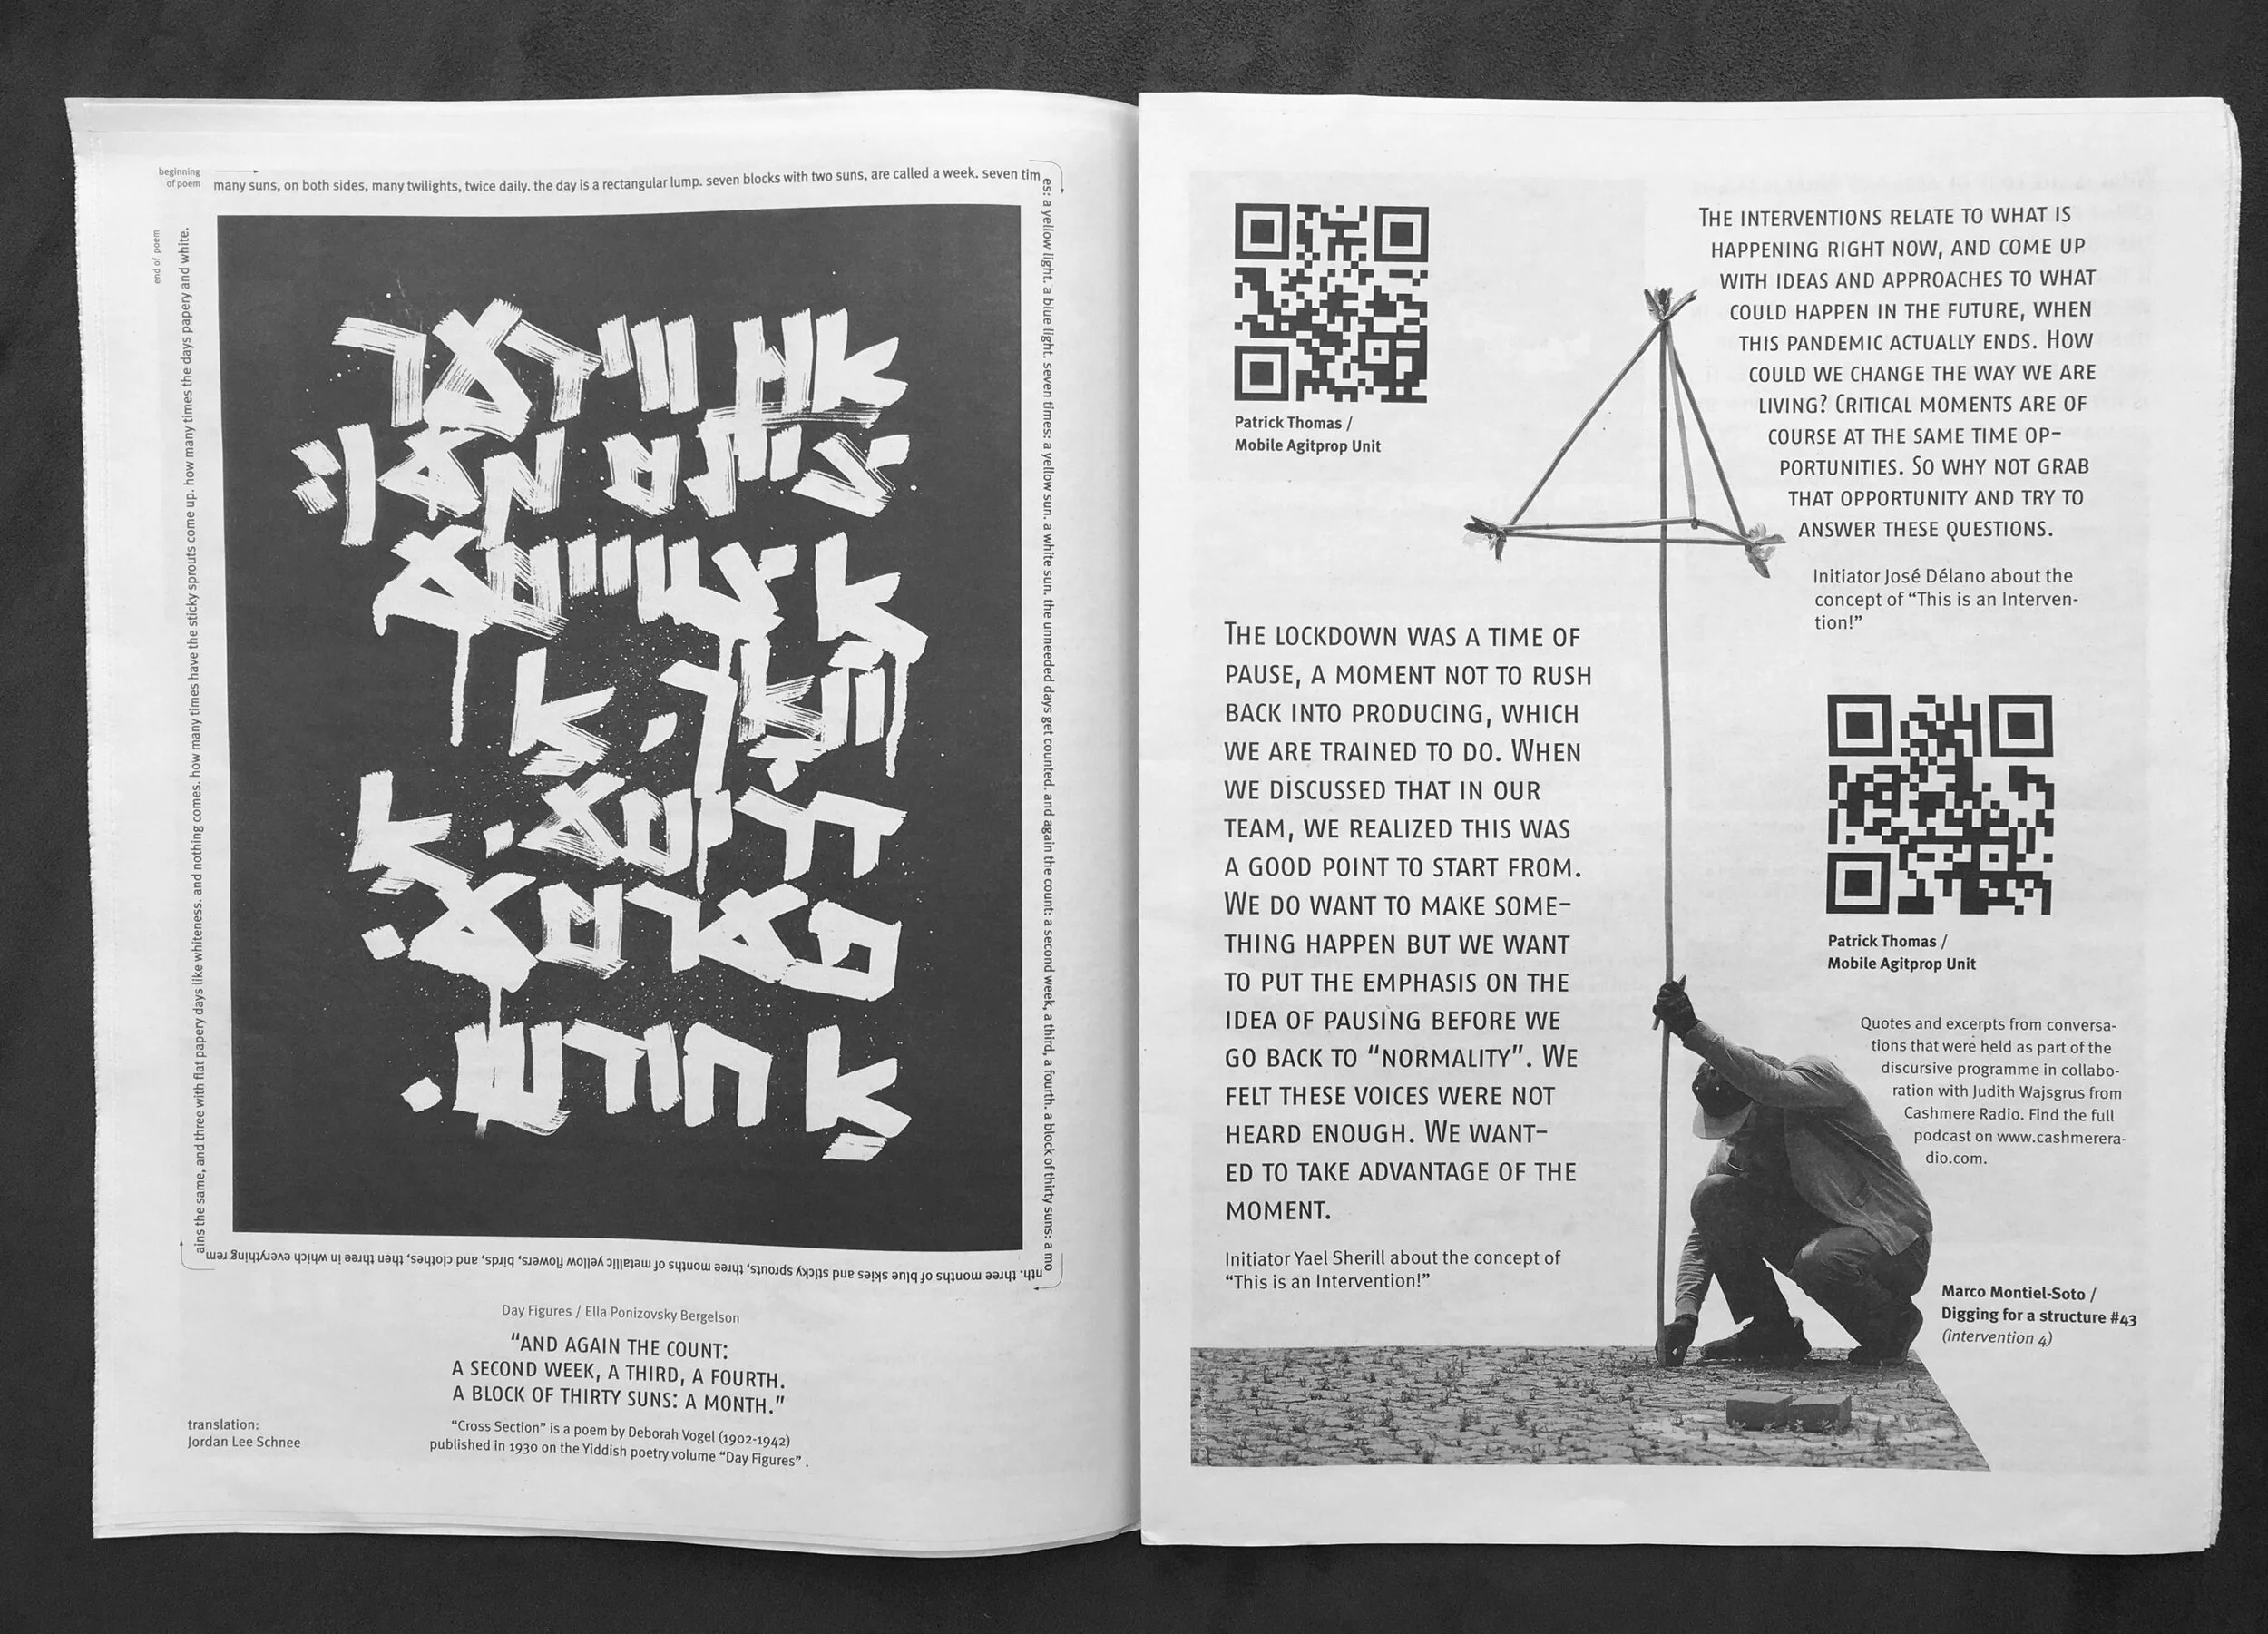 beginning
of poem
many suns, on both sides, many twilights, twice daily. the day is a rectangular lump. seven blocks with two suns, are called a week. seven tim
es: a yellow light. a blue light. seven times: a yellow sun. a white sun. the unneeded days get counted. and again the count: a second week, a third, a fourth. a block of thirty suns: a mo
nth. three months of blue skies and sticky sprouts, three months of metallic yellow flowers, birds, and clothes, then three in which everything rem
ains the same, and three with flat papery days like whiteness. and nothing comes. how many times have the sticky sprouts come up. how many times the days papery and white.
end of poem
און ווידער
ציילט מען:
אַ צווייטע
וואָך. אַ
דריטע. אַ
פערטע.
אַ חודש.
Day Figures / Ella Ponizovsky Bergelson
“AND AGAIN THE COUNT:
A SECOND WEEK, A THIRD, A FOURTH.
A BLOCK OF THIRTY SUNS: A MONTH.”
“Cross Section” is a poem by Deborah Vogel (1902-1942)
published in 1930 on the Yiddish poetry volume “Day Figures” .
translation:
Jordan Lee Schnee
Patrick Thomas /
Mobile Agitprop Unit
THE LOCKDOWN WAS A TIME OF
PAUSE, A MOMENT NOT TO RUSH
BACK INTO PRODUCING, WHICH
WE ARE TRAINED TO DO. WHEN
WE DISCUSSED THAT IN OUR
TEAM, WE REALIZED THIS WAS
A GOOD POINT TO START FROM.
WE DO WANT TO MAKE SOME-
THING HAPPEN BUT WE WANT
TO PUT THE EMPHASIS ON THE
IDEA OF PAUSING BEFORE WE
GO BACK TO “NORMALITY”. WE
FELT THESE VOICES WERE NOT
HEARD ENOUGH. WE WANT-
ED TO TAKE ADVANTAGE OF THE
MOMENT.
Initiator Yael Sherill about the concept of
“This is an Intervention!”
THE INTERVENTIONS RELATE TO WHAT IS
HAPPENING RIGHT NOW, AND COME UP
WITH IDEAS AND APPROACHES TO WHAT
COULD HAPPEN IN THE FUTURE, WHEN
THIS PANDEMIC ACTUALLY ENDS. HOW
COULD WE CHANGE THE WAY WE ARE
LIVING? CRITICAL MOMENTS ARE OF
COURSE AT THE SAME TIME OP-
PORTUNITIES. SO WHY NOT GRAB
THAT OPPORTUNITY AND TRY TO
ANSWER THESE QUESTIONS.
Initiator José Délano about the
concept of “This is an Interven-
tion!”
Patrick Thomas /
Mobile Agitprop Unit
Quotes and excerpts from conversa-
tions that were held as part of the
discursive programme in collabo-
ration with Judith Wajsgrus from
Cashmere Radio. Find the full
podcast on www.cashmerera-
dio.com.
Marco Montiel-Soto /
Digging for a structure #43
(intervention 4)